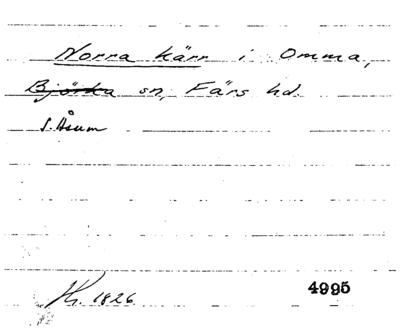 Norra kärr i Omma,
Björka sn, Färs hd.
S. Åsum
1826
4995